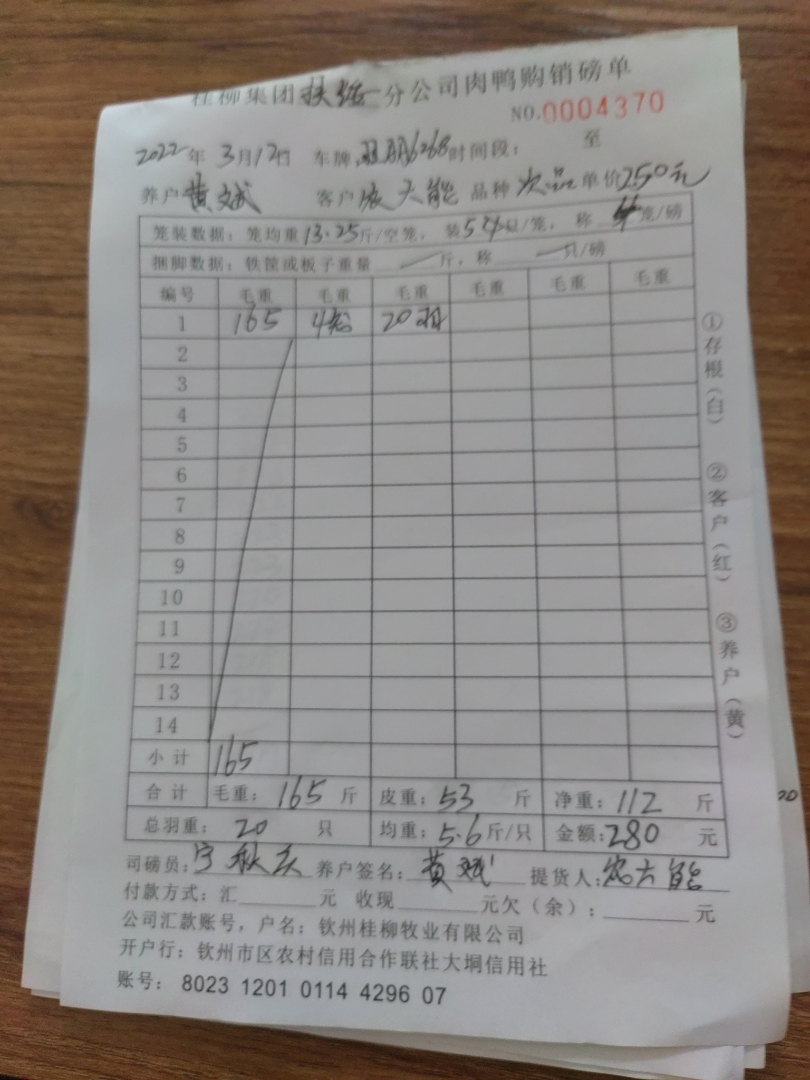 桂柳集团扶绥分公司肉鸭购销磅单
NO.0004370
2022年3月12日 车牌 6268时间段: 至
养户黄斌 客户农天能 品种次品单价2.50元
笼装数据: 笼均重13.25斤/空笼, 装5只/笼, 称4笼/磅
捆脚数据: 铁筐或板子重量 斤, 称 只/磅
编号 毛重 毛重 毛重 毛重 毛重 毛重
1 165 4笼 20羽
2
3
4
5
6
7
8
9
10
11
12
13
14
小计 165
合计 毛重: 165斤 皮重: 53斤 净重: 112斤
总羽重: 20只 均重: 5.6斤/只 金额: 280元
司磅员: 宁秋 养户签名: 黄斌 提货人: 农天能
付款方式: 汇 元 收现 元欠(余): 元
公司汇款账号, 户名: 钦州桂柳牧业有限公司
开户行: 钦州市区农村信用合作联社大垌信用社
账号: 8023 1201 0114 4296 07
①存根(白) ②客户(红) ③养户(黄)